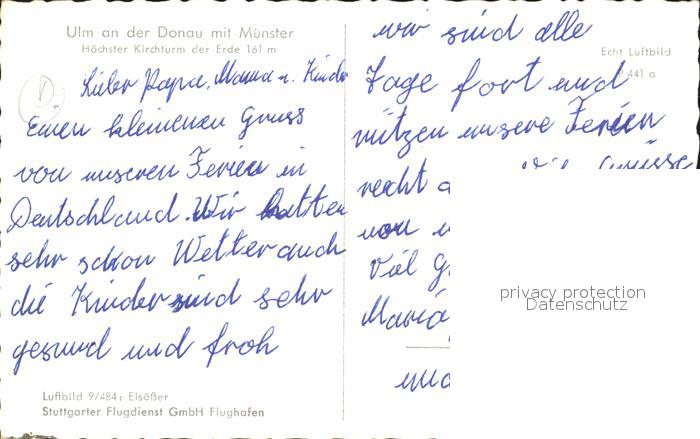 Ulm an der Donau mit Münster
Höchster Kirchturm der Erde 161 m
Lieber Papa, Mama u. Kinder
Einen kleinenen Gruss
von unseren Ferien in
Deutschland. Wir hatten
sehr schon Wetter auch
die Kinder sind sehr
gesund und froh
Luftbild 9/484: Elsäßer
Stuttgarter Flugdienst GmbH Flughafen
wir sind alle
Echt Luftbild
441 a
Tage fort und
nützen unsere Ferien
recht
Grüsse
von
Viel
Maria
und
privacy protection
Datenschutz